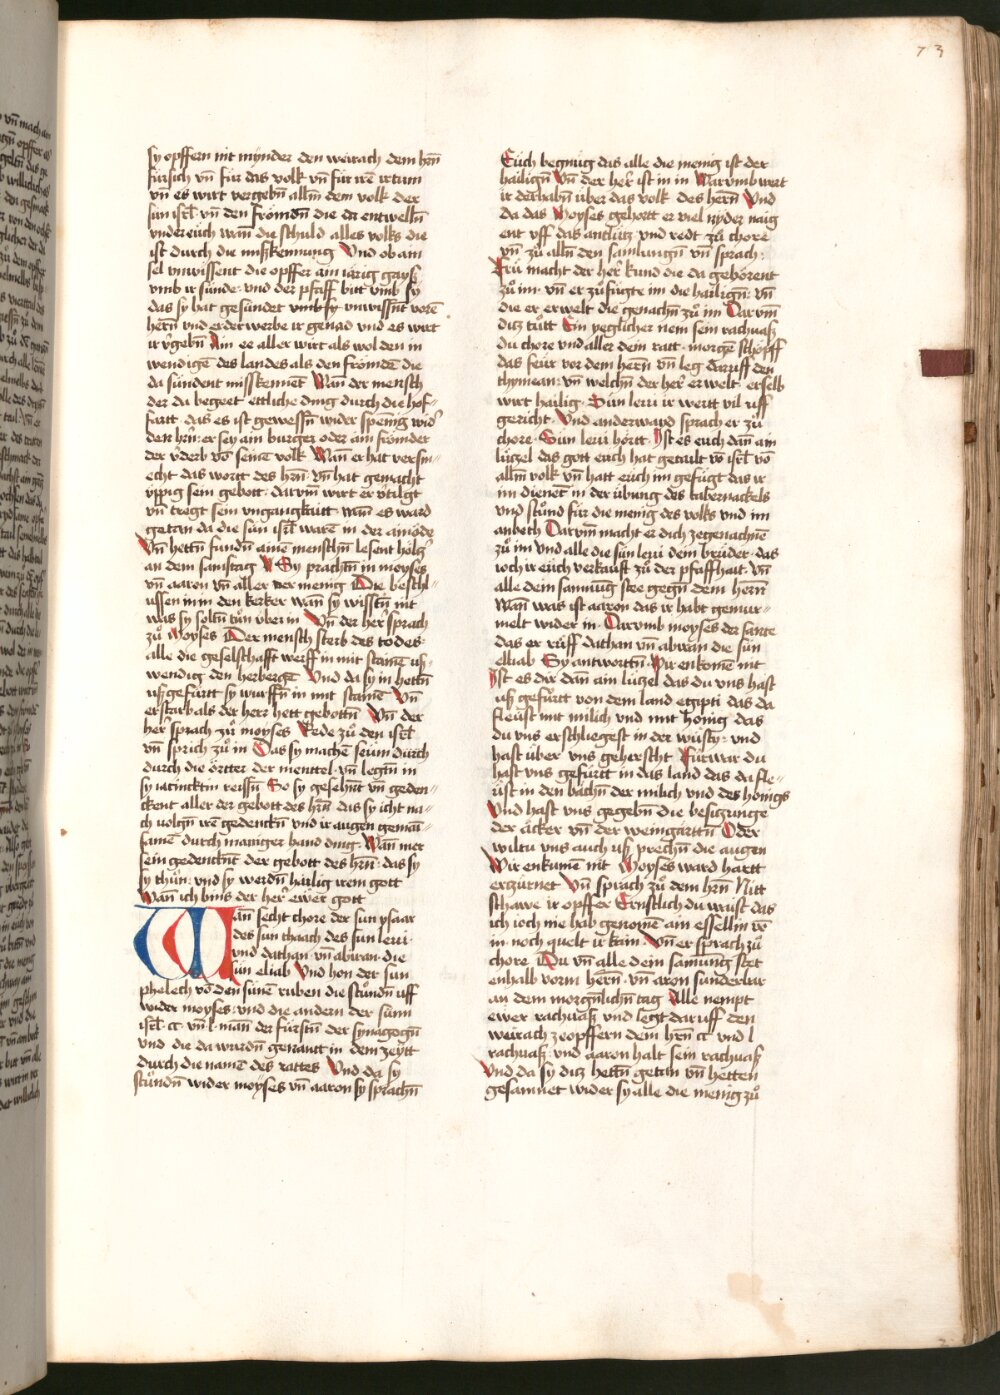 73
sy opffern nit mynder den weirach dem hrñ
fürsich vñ für das volk vñ für irē irtum
vñ es wirt vergebñ allm̄ dem volk der
sün isrl̄ vñ den frömdñ die da entwelln̄
vnder euch wañ die schuld alles volks die
ist durch die misskennung Vnd ob ain
sel vnwissent die opffer ain iärig gayß
vmb ir sünde · vnd der pfaff bitt vmb sy
das sy hat gesündet vmb sy vnwissñt vorē
hērn vnd er der werbe ir genad vnd es wirt
ir v̓gebñ Ain ee aller wirt als wol den in
wendigē des landes als den frömdē die
da sündent misskennēt Wañ der mensch
der da begeet ettliche ding durch die hof-
fartt · das es ist gewessñ wider spēnig wid̓
den hrñ · er sey ain burger oder ain frömder
der v̓derb vō seinē volk Wañ er hat versm-
echt das wortt des hrñ · vñ hat gemacht
v̈ppig sein gebott · darvm̄ wirt er v̓tilgt
vñ tregt sein vngangkaitt · wañ es ward
getan da die sün isrl̄ warē in der ainöde
Vñ hettñ fundñ ainē menschñ lesent höltz̓
an dem samstag Sy prachtñ in moyses
vñ aaron vñ aller der menig Die beschl-
ussen in in den kerker wañ sy wisstñ nit
was sy soltñ tůn über in Vñ der her̓ sprach
zů Moyses Der mensch sterb des todes ·
alle die geselschafft werff in mit stainē uß-
wendig den herbergē Vnd da sy in hettñ
ußgefürtt sy wurffñ in mit stainē Vñ
er starb als der herr hett gebottñ Vñ der
her̓ sprach zů moyses Rede zů den isrl̄
vñ sprich zů in Das sy machē seüm durch
durch die örtter der menttel · vñ legtñ in
sy iacincktin reissñ So sy gesehñt vñ geden-
ckent aller der gebott des hrñ das sy icht na-
ch volgñ irē gedenckñ vnd ir augen gemai-
samē durch maniger hand ding · Wañ mer
sein gedenckñt der gebott des hrñ · das sy
sy thůn · vnd sy werdñ hailig irem gott
Wañ ich bins der her̓ ewer gott
Wan secht chore der sun ysaar
des sun chaach des sun leui ·
vnd dathan · vñ abiran · die
sün eliab Vnd hon der sun
phelech vō den sünē ruben die stůndñ uff
wider moyses · vnd die andern der sünn
isrl̄ · cc · vñ · l · man̄ der fürstñ der synagogñ
vnd die da wurdñ genantt in dem zeytt
durch die namē des rattes Vnd da sy
stůndñ wider moyses vñ aaron sy sprachñ
Euch begnüg das alle die menig ist der
hailigñ Vñ der her̓ ist in in Warvmb wert
ir derhabñ über das volk des hērn Vnd
da das Moyses gehortt er viel nyder naig
ent vff das antlütz vnd redt zů chore
vñ zů alln̄ den samlungñ vñ sprach ·
Frü macht der her̓ kund die da gehörent
zů im · vñ er zůfügte im die hailigñ · vñ
die er erwelt die genachñ zů im Darvm̄
ditz tůtt Ein yeglicher nem sein rachuaß
du chore vnd aller dem ratt · morgē schöpff
das feür vor dem hērn vñ leg daruff den
thymean · vñ welchñ der her̓ erwelt · er selb
wirt hailig · Sün leui ir wertt vil uff
gericht · Vnd anderwayd sprach er zů
chore · Sün leui hörtt · Ist es euch dañ ain
lützel das gott euch hat getailt vō isrl̄ vō
allm̄ volk vñ hatt euch im gefügt das ir
im dienēt in der übung des tabernackels
vnd stünd für die menig des volks vnd im
anbett Darvm̄ macht er dich ze genachnē
zů im vnd alle die sün leui dem brüder · das
ioch ir euch verkaufst zů der pfaffhait · Vñ
alle dein samnūg stee gegñ dem hērñ
Wañ was ist aaron das ir habt gemur-
melt wider in · Darvmb moyses der sante
das er rüff dathan vñ abiran die sün
eliab Sy antworttñ Wir enkomē nit
Ist es dir dañ ain lützel das du vns hast
uß gefürtt von dem land egipti das da
fleüst mit milich vnd mit honig das
du vns erschliegest in der wüsty · vnd
hast über vns geherscht Fürwar du
hast vns gefürtt in das land das da fle-
üst in den bächñ der milich vnd des hönigs
Vnd hast vns gegebñ die besitzunge
der äcker vñ der weingärttñ Oder
wiltu vns auch uß prechñ die augen
Wir enkumē nit Moyses ward hartt
erzürnet Vñ sprach zů dem hrñ Nitt
schawe ir opffer Ernstlich du waist das
ich ioch nie hab genomē ain essellin vō
in · noch quelt ir kain · Vñ er sprach zů
chore Du vñ alle dein samung stet
enhalb vorm hērn̄ · vñ aron sunderbar
an dem morgñlichñ tag Alle nempt
ewer rachuaß vnd legt daruff den
weirach ze opffern dem hrñ cc vnd l
rachuaß · vnd aaron halt sein rachuaß
Vnd da sy ditz hettñ getan vñ hetten
gesamnet wider sy alle die menig zů